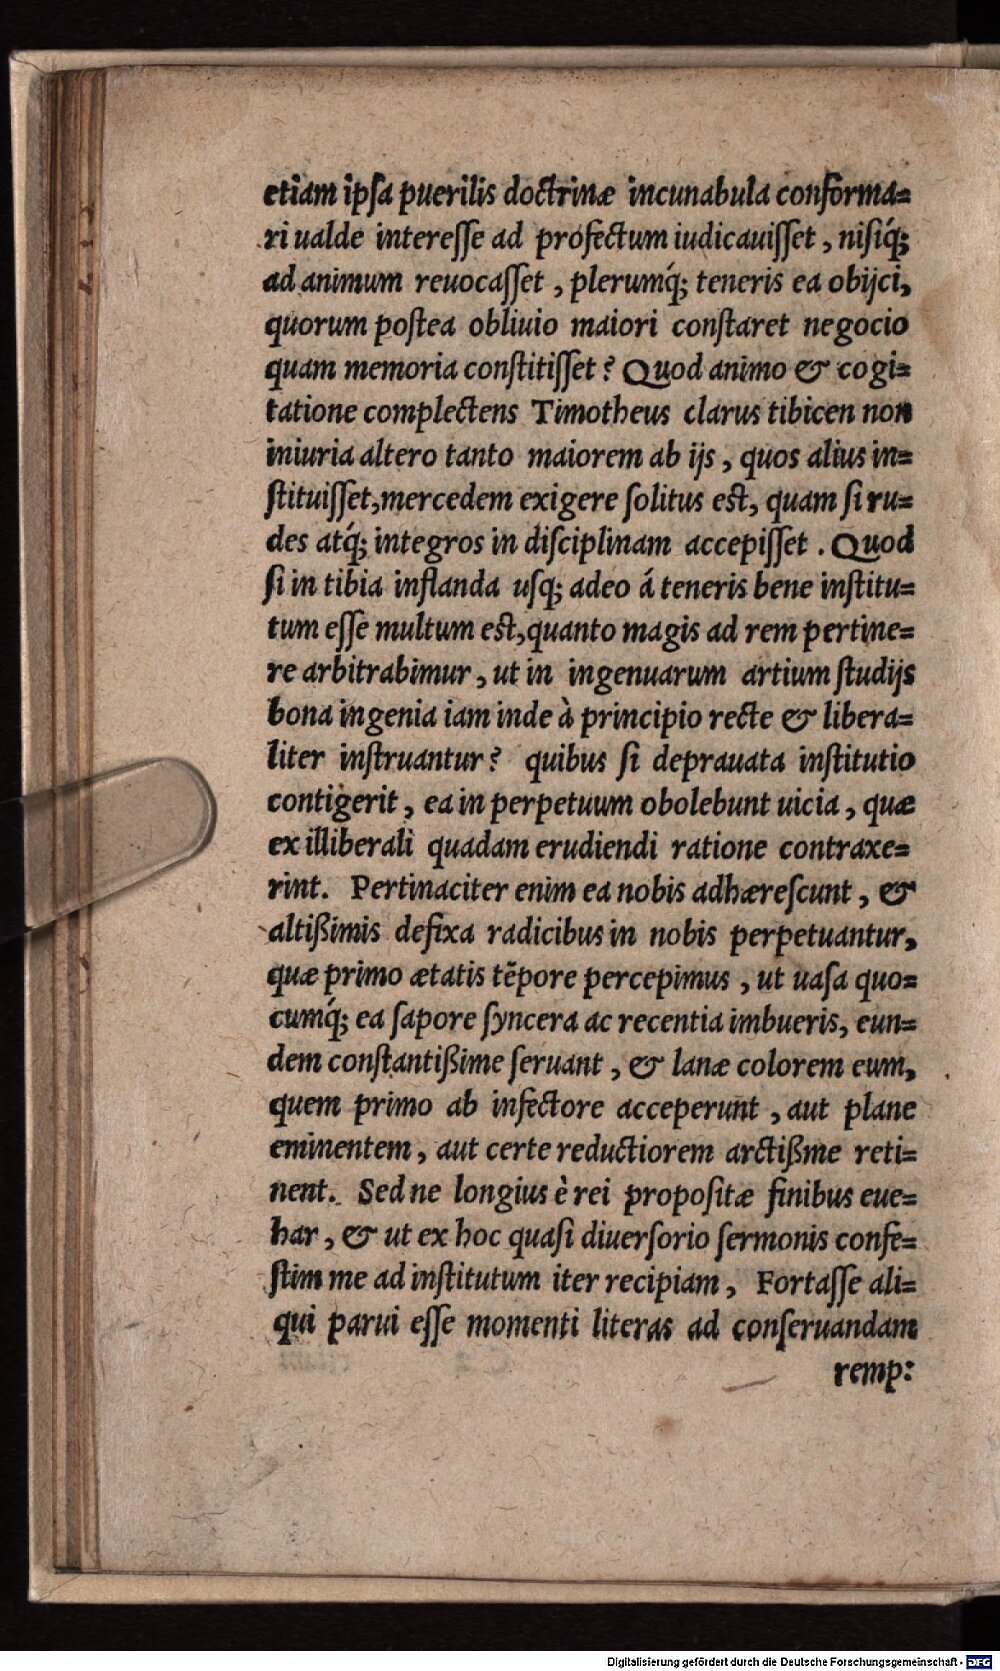 etiam ipſa puerilis doctrinæ incunabula conforma=
ri ualde intereſſe ad profectum iudicauiſſet, niſiq́;
ad animum reuocaſſet, plerumq́; teneris ea obijci,
quorum poſtea obliuio maiori conſtaret negocio
quam memoria conſtitiſſet? Quod animo & cogi=
tatione complectens Timotheus clarus tibicen non
iniuria altero tanto maiorem ab ijs, quos alius in=
ſtituiſſet, mercedem exigere ſolitus eſt, quam ſi ru=
des atq́; integros in diſciplinam accepiſſet. Quod
ſi in tibia inflanda uſq; adeo á teneris bene inſtitu=
tum eſſe multum eſt, quanto magis ad rem pertine=
re arbitrabimur, ut in ingenuarum artium ſtudijs
bona ingenia iam inde à principio recte & libera=
liter inſtruantur? quibus ſi deprauata inſtitutio
contigerit, ea in perpetuum obolebunt uicia, quæ
ex illiberali quadam erudiendi ratione contraxe=
rint. Pertinaciter enim ea nobis adhæreſcunt, &
altißimis defixa radicibus in nobis perpetuantur,
quæ primo ætatis tẽpore percepimus, ut uaſa quo=
cumq́; ea ſapore ſyncera ac recentia imbueris, eun=
dem conſtantißime ſeruant, & lanæ colorem eum,
quem primo ab infectore acceperunt, aut plane
eminentem, aut certe reductiorem arctißme reti=
nent. Sed ne longius è rei propoſitæ finibus eue=
har, & ut ex hoc quaſi diuerſorio ſermonis confe=
ſtim me ad inſtitutum iter recipiam, Fortaſſe ali=
qui parui eſſe momenti literas ad conſeruandam
remp:
Digitalisierung gefördert durch die Deutsche Forschungsgemeinschaft - DFG